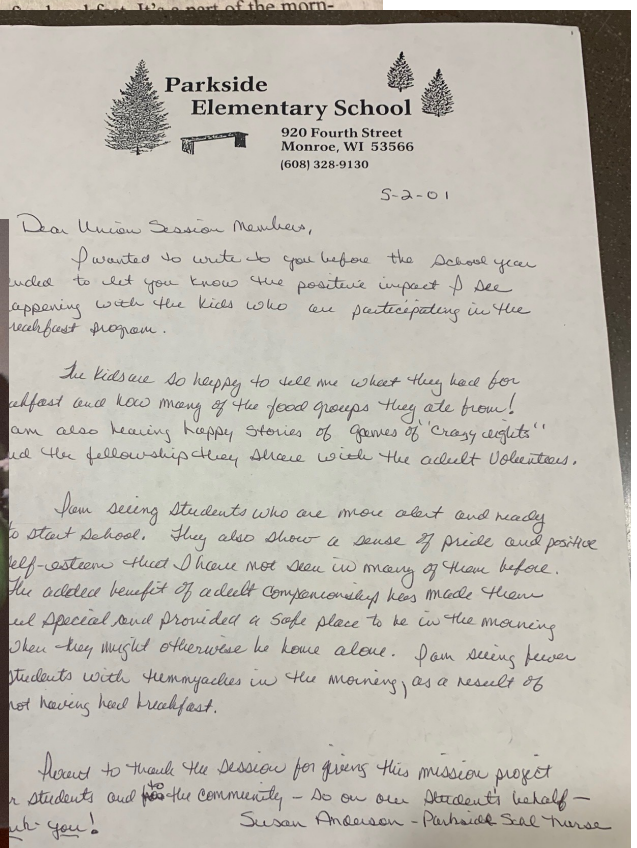 It's a part of the morn-
Parkside
Elementary School
920 Fourth Street
Monroe, WI 53566
(608) 328-9130
5-2-01
Dear Union Session Members,
I wanted to write to you before the school year
nded to let you know the positive impact I see
appening with the kids who are participating in the
reakfast program.
The kids are so happy to tell me what they had for
akfast and how many of the food groups they ate from!
am also hearing happy stories of games of "crazy eights"
nd the fellowship they share with the adult volunteers.
I am seeing students who are more alert and ready
to start school. They also show a sense of pride and positive
self-esteem that I have not seen in many of them before.
The added benefit of adult companionship has made them
eel special and provided a safe place to be in the morning
when they might otherwise be home alone. I am seeing fewer
students with tummyaches in the morning, as a result of
not having had breakfast.
I want to thank the session for giving this mission project
r students and to the community - so on our student's behalf -
nk you! Susan Anderson - Parkside School Nurse